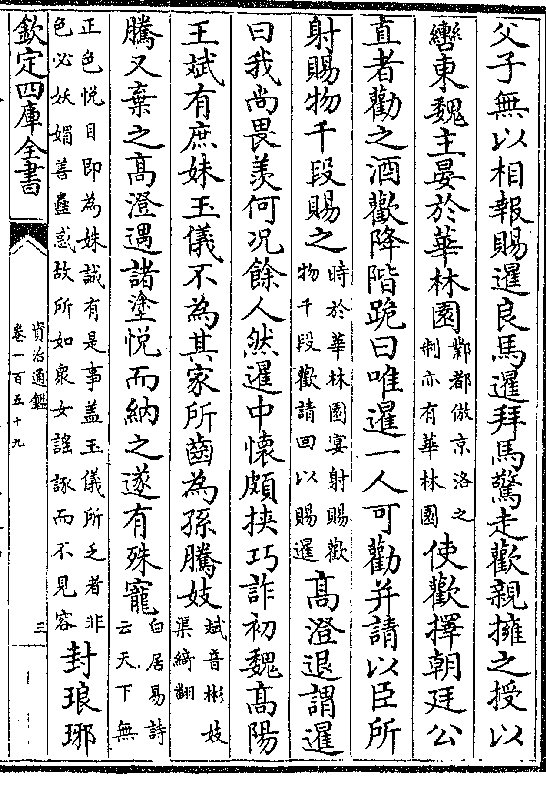 父子無以相報賜暹良馬暹拜馬驚走歡親擁之授以
轡東魏主晏於華林園鄴都倣京洛之制亦有華林園使歡擇朝廷公
直者勸之酒歡降階跪曰唯暹一人可勸并請以臣所
射賜物千段賜之時於華林園宴射賜歡物千段歡請回以賜暹髙澄退謂暹
曰我尚畏羡何况餘人然暹中懷頗挾巧詐初魏髙陽
王斌有庶妹玉儀不為其家所齒為孫騰妓斌音彬妓渠綺翻
騰又棄之髙澄遇諸塗悦而納之遂有殊寵白居易詩云天下無
正色悦目即為姝誠有是事盖玉儀所乏者非色必妖媚善蠱惑故所如衆女謡諑而不見容封琅琊
欽定四庫全書
資治通鑑
卷一百五十九
三